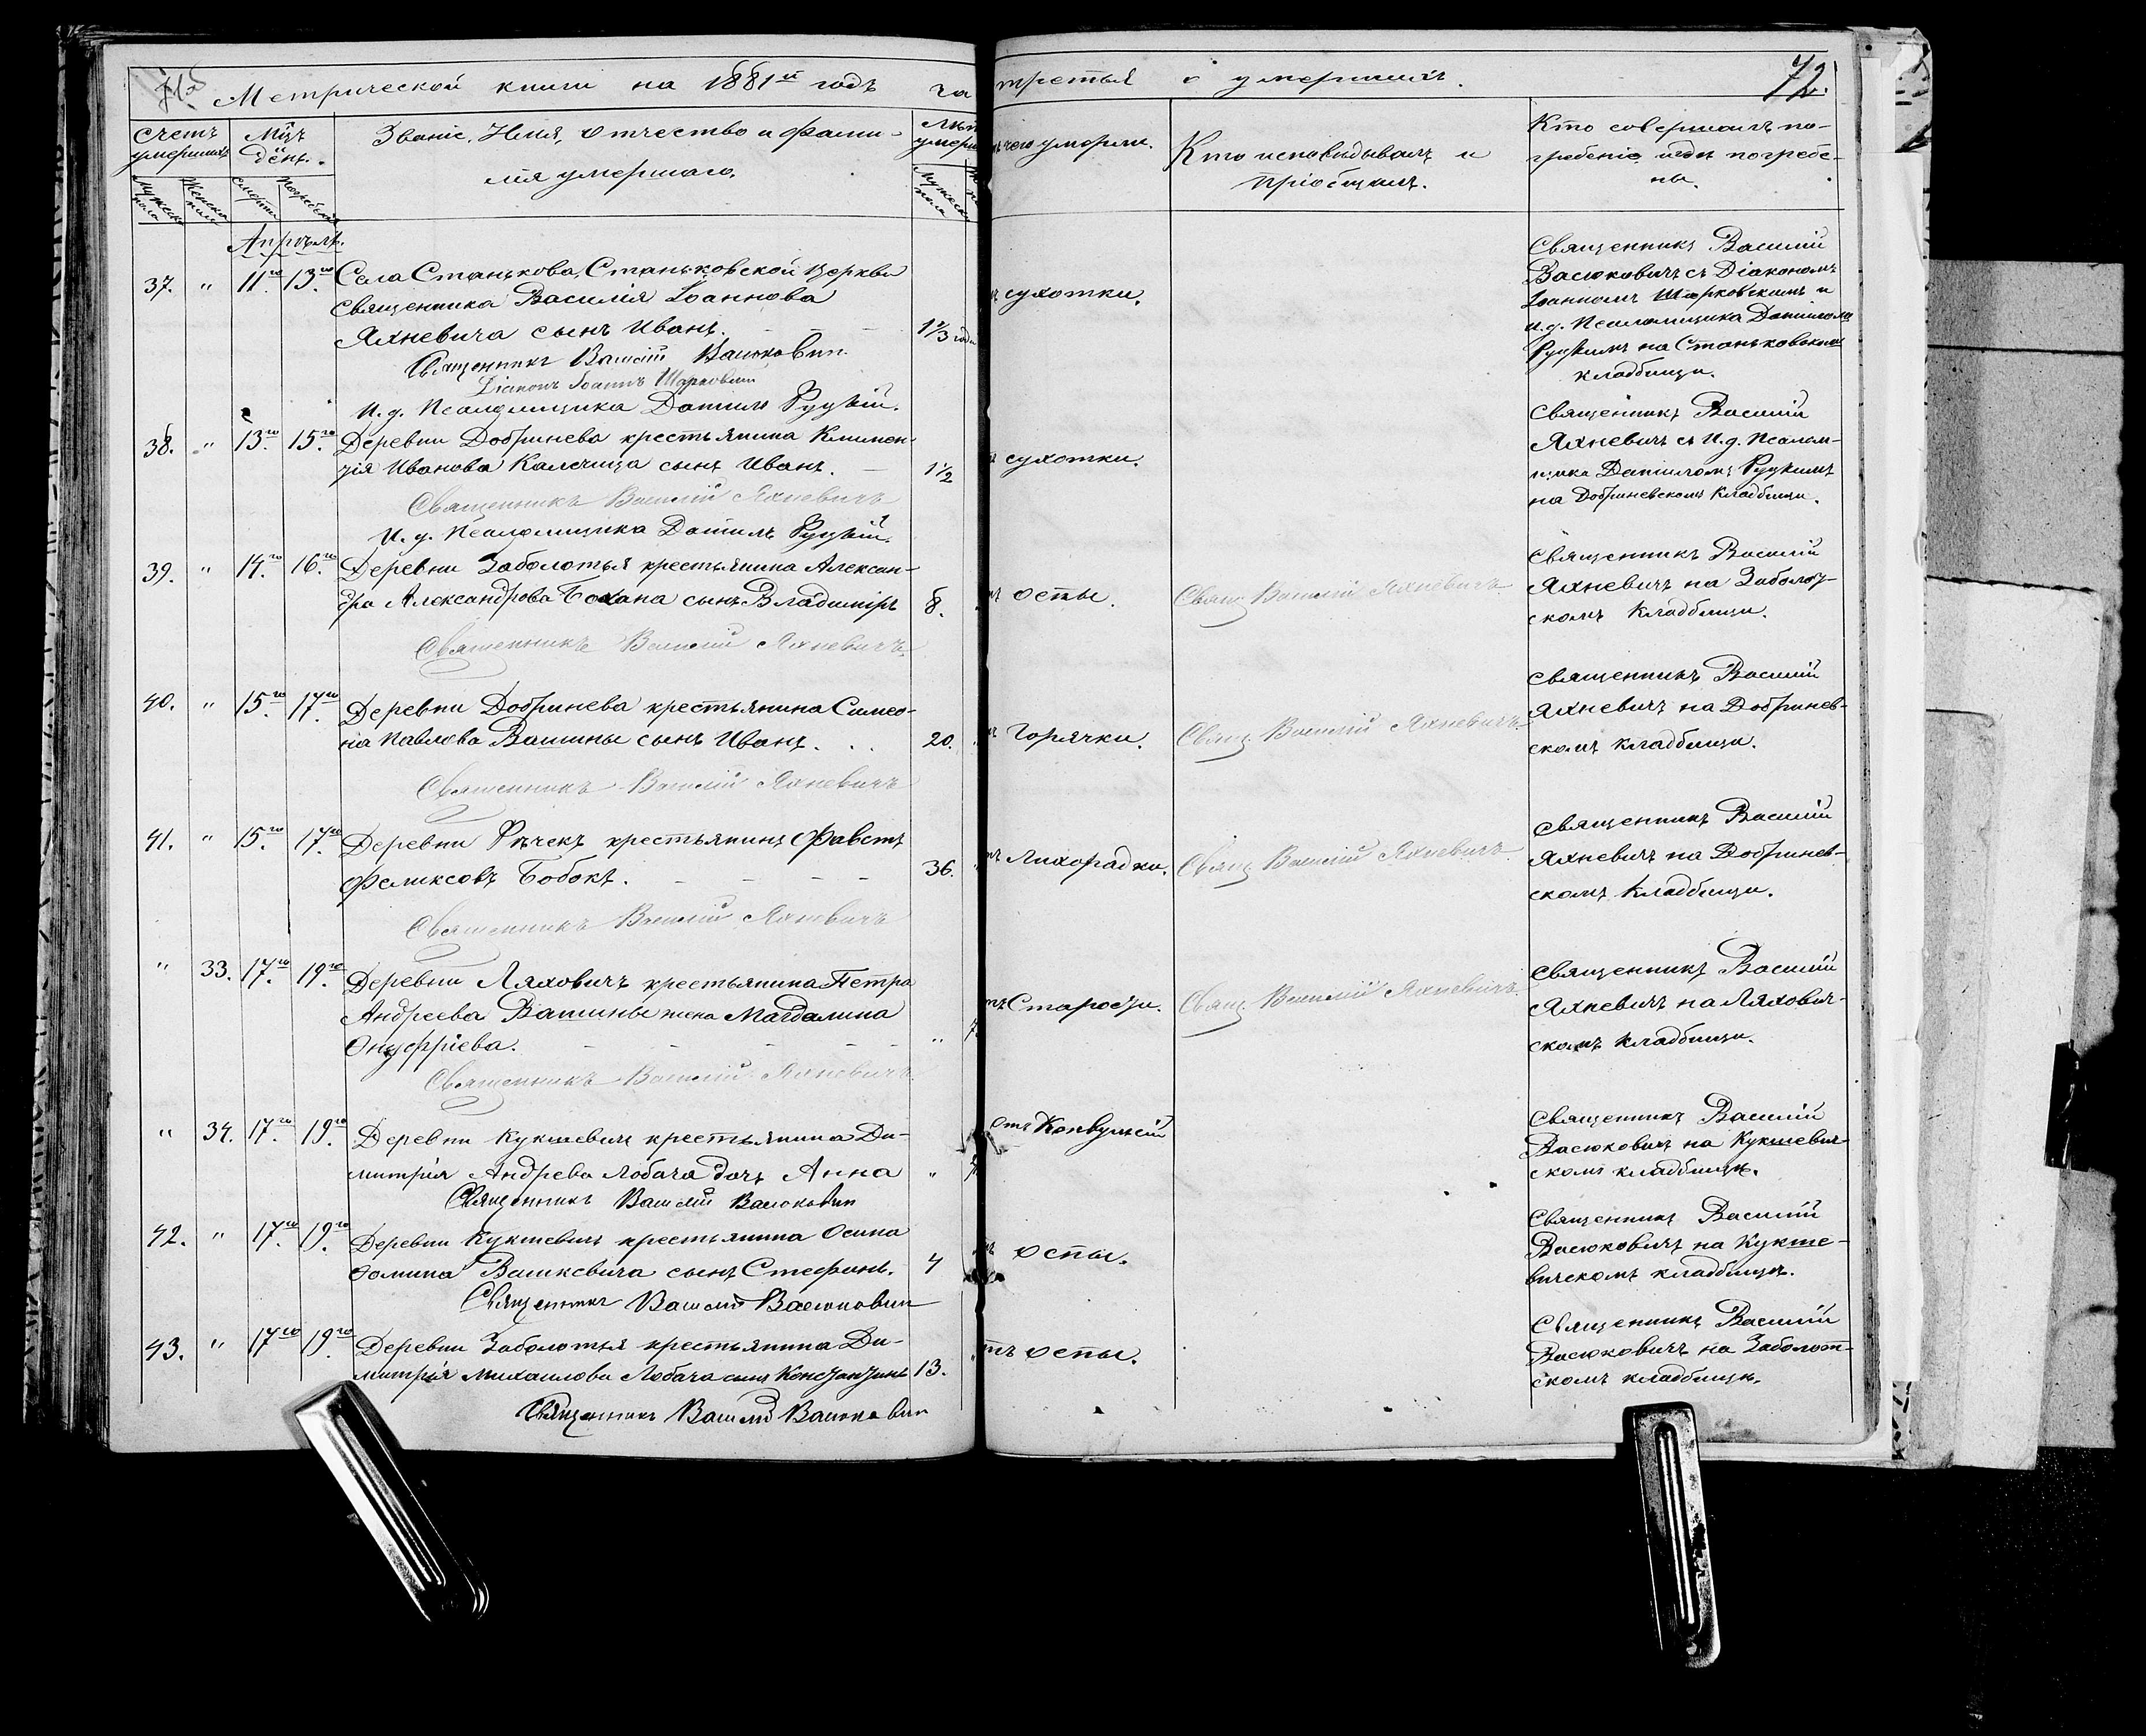 Метрической книги на 1881й годъ ча
Счетъ умершихъ
Мцъ и день.
Званіе, Имя, отчество и фами-
лія умершаго.
Лѣт умерш
Мужеска пола
Женска пола
Смерти
Погребенія
Мужеска пола
Апрѣль.
37. " 11го 13го Села Станькова, Станьковской церкви
священника Василія Іоаннова
Яхневича сынъ Иванъ. - - - 1 2/3 года
Священникъ Василій Васюковичъ
Діаконъ Іоаннъ Шарковскій
И. д. Псаломщика Даніилъ Руцкій.
38. " 13го 15го Деревни Добринева крестьянина Климен-
тія Иванова Калечица сынъ Иванъ. - 1 1/2
Священникъ Василій Яхневичъ
И. д. Псаломщика Даніилъ Руцкій.
39. " 14го 16го Деревни Заболотья крестьянина Алексан-
дра Александрова Бохана сынъ Владиміръ 8.
Священникъ Василій Яхневичъ
40. " 15го 17го Деревни Добринева крестьянина Симео-
на Павлова Вашины сынъ Иванъ. . . 20.
Священникъ Василій Яхневичъ
41. " 15го 17го Деревни Рѣчекъ крестьянинъ Фавстъ
Феликсовъ Бобокъ. - - - - 36.
Священникъ Василій Яхневичъ
" 33. 17го 19го Деревни Ляховичъ крестьянина Петра
Андреева Вашины жена Магдалина
Онуфріева. - - - - - " 7
Священникъ Василій Яхневичъ
" 34. 17го 19го Деревни Кукшевичъ крестьянина Ди-
митрія Андреева Лобача дочь Анна "
Священникъ Василій Васюковичъ
42. " 17го 19го Деревни Кукшевичъ крестьянина Осипа
Фомина Вашкевича сынъ Стефанъ. 4
Священникъ Василій Васюковичъ
43. " 17го 19го Деревни Заболотья крестьянина Ди-
митрія Михаилова Лобача сынъ Константинъ 13.
Священникъ Василій Васюковичъ
третья о умершихъ. 72.
чего умерли.
Кто исповѣдывалъ и
пріобщалъ.
Кто совершалъ по-
гребеніе и гдѣ погребе-
ны.
сухотки.
Священникъ Василій
Васюковичъ съ Діакономъ
Іоанномъ Шарковскимъ и
и. д. Псаломщика Даніиломъ
Руцкимъ на Станьковскомъ
кладбищи.
сухотки.
Священникъ Василій
Яхневичъ съ И. д. Псалом-
щика Даніиломъ Руцкимъ
на Добриневскомъ кладбищи.
оспы.
Свящ. Василій Яхневичъ
Священникъ Василій
Яхневичъ на Заболот-
скомъ кладбищи.
горячки.
Свящ. Василій Яхневичъ
Священникъ Василій
Яхневичъ на Добринев-
скомъ кладбищи.
лихорадки.
Свящ. Василій Яхневичъ
Священникъ Василій
Яхневичъ на Добринев-
скомъ кладбищи.
тъ Старости.
Свящ. Василій Яхневичъ
Священникъ Василій
Яхневичъ на Ляхович-
скомъ кладбищи.
отъ Конвульсій
Священникъ Василій
Васюковичъ на Кукшевич-
скомъ кладбищѣ.
оспы.
Священникъ Василій
Васюковичъ на Кукше-
вичскомъ кладбищѣ.
тъ оспы.
Священникъ Василій
Васюковичъ на Заболот-
скомъ кладбищѣ.